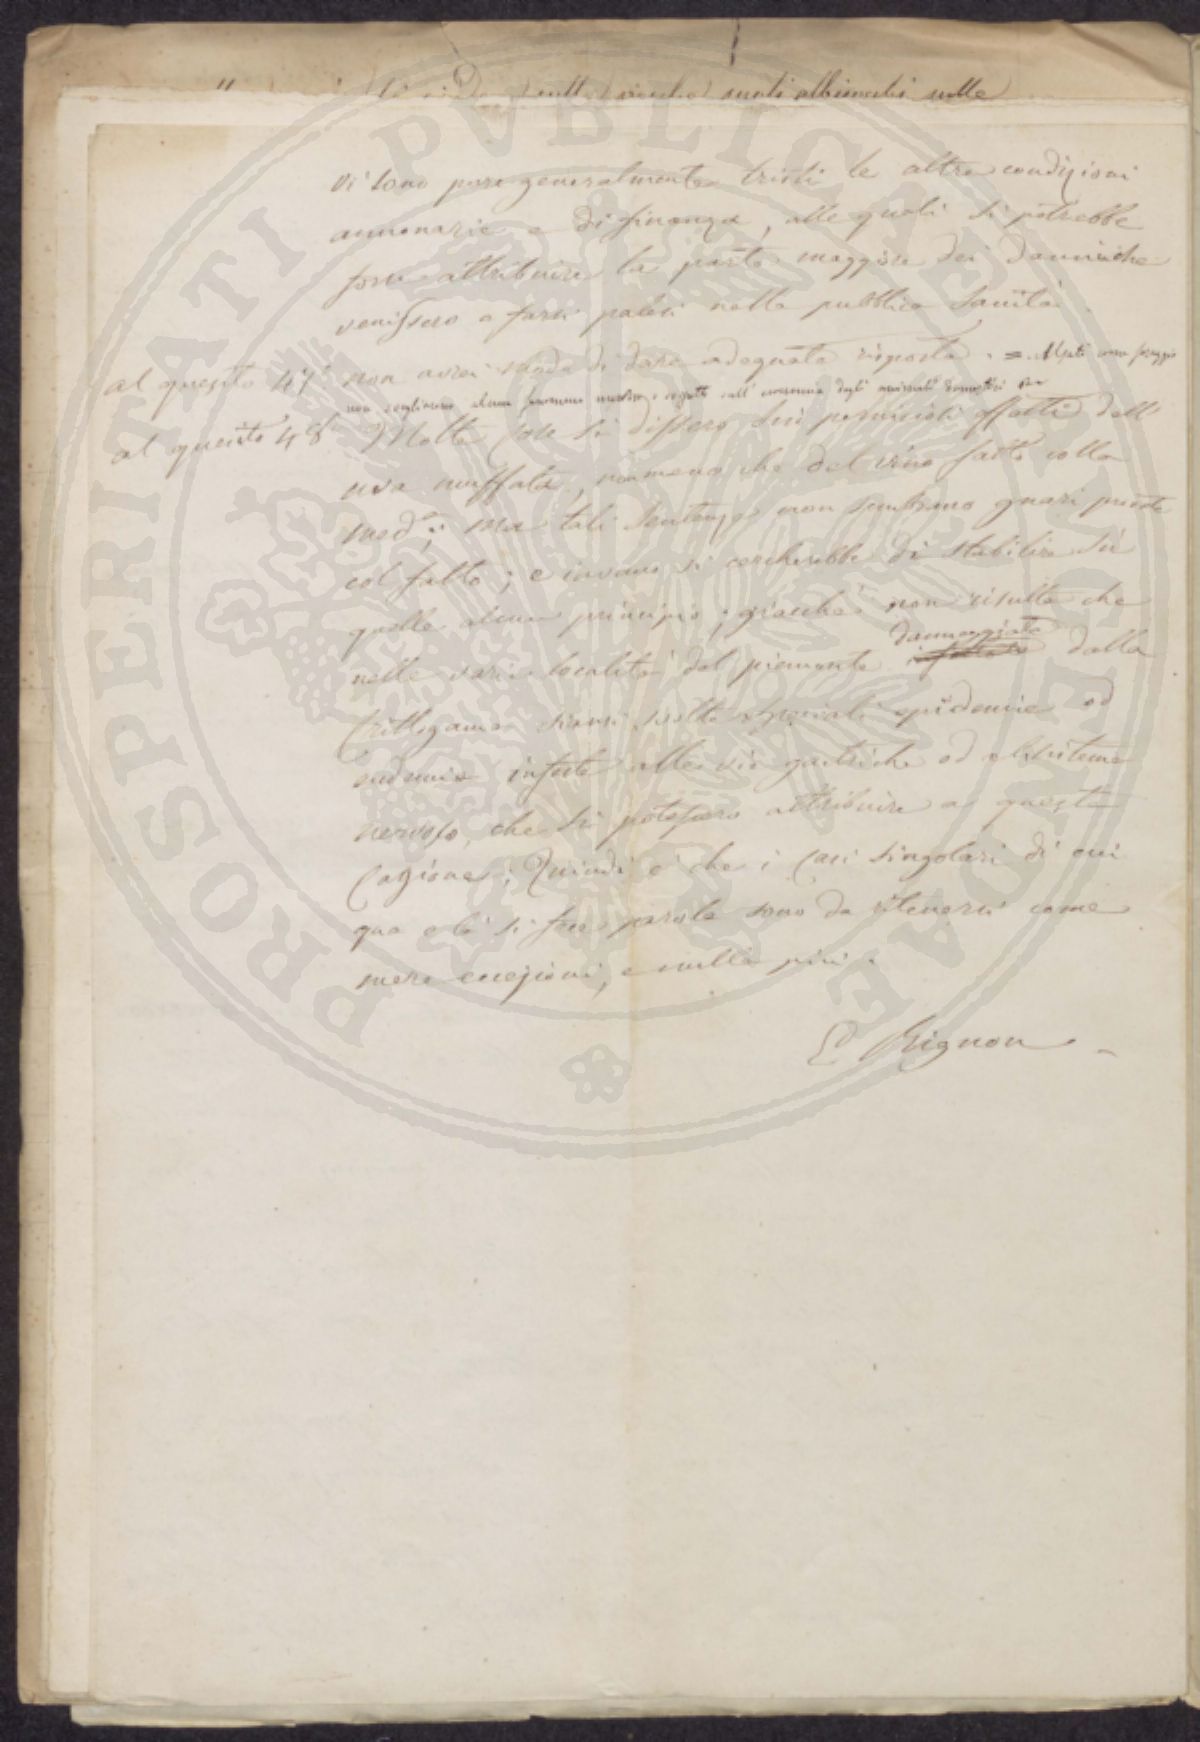 sulle viti albicocchi sulle
vi sono pure generalmente tristi le altre condizioni
annonarie e di finanza, alle quali si potrebbe
forse attribuire la parte maggiore dei danni che
venissero a farsi palesi nella pubblica sanità.
al quesito 47° non avrei modo di dare adeguata risposta. =
non vogliono alcun fenomeno morboso e rispetto sull' economia degli animali domestici
al quesito 48° Molte cose si dissero sui perniciosi effetti dell'
uva muffata, nonmeno che del vino fatto colla
med.ª; ma tali sentenze non sembrano guari provate
col fatto; e invano si cercherebbe di stabilire su
quelle alcun principio; giacché non risulta che
nelle varie località del piemonte danneggiate dalla
crittogama siansi svolte speciali epidemie od
endemie infeste alle vie gastriche od al sistema
nervoso, che si potessero attribuire a questa
Cagione; Quindi è che i casi singolari di cui
qua e là si fece parola sono da ritenersi come
mere eccezioni, e nulla più.
E Rignon
PROSPERITATI PVBLICAE AVGENDAE